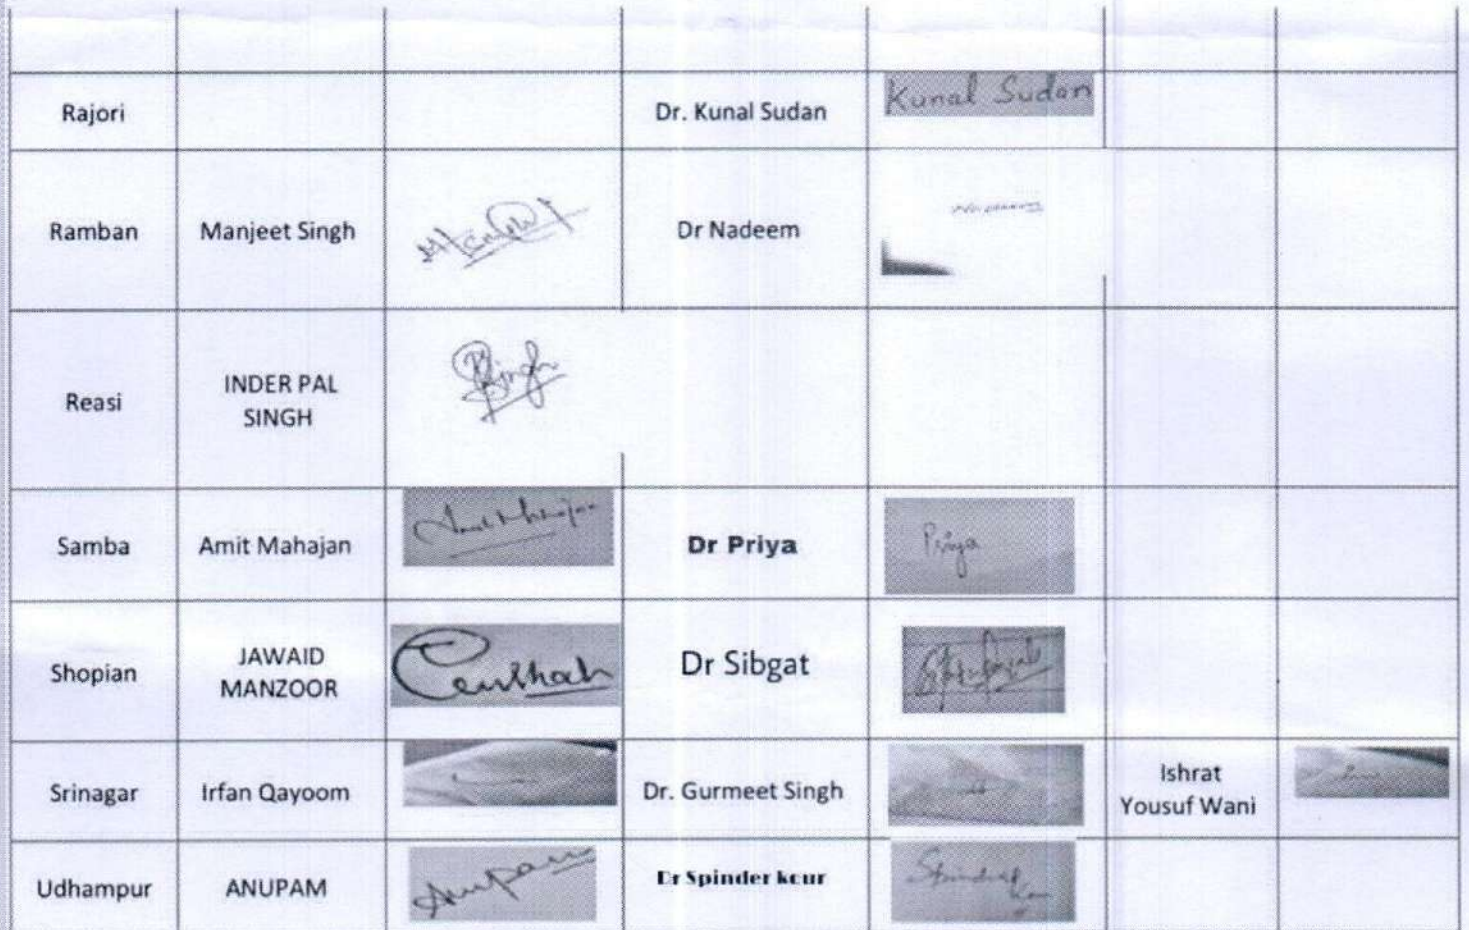 Rajori
Dr. Kunal Sudan
Kunal Sudan
Ramban
Manjeet Singh
Dr Nadeem
Reasi
INDER PAL
SINGH
Singh
Samba
Amit Mahajan
Amit Mahajan
Dr Priya
Priya
Shopian
JAWAID
MANZOOR
Dr Sibgat
Srinagar
Irfan Qayoom
Dr. Gurmeet Singh
Ishrat
Yousuf Wani
Udhampur
ANUPAM
Anupam
Dr Spinder kour